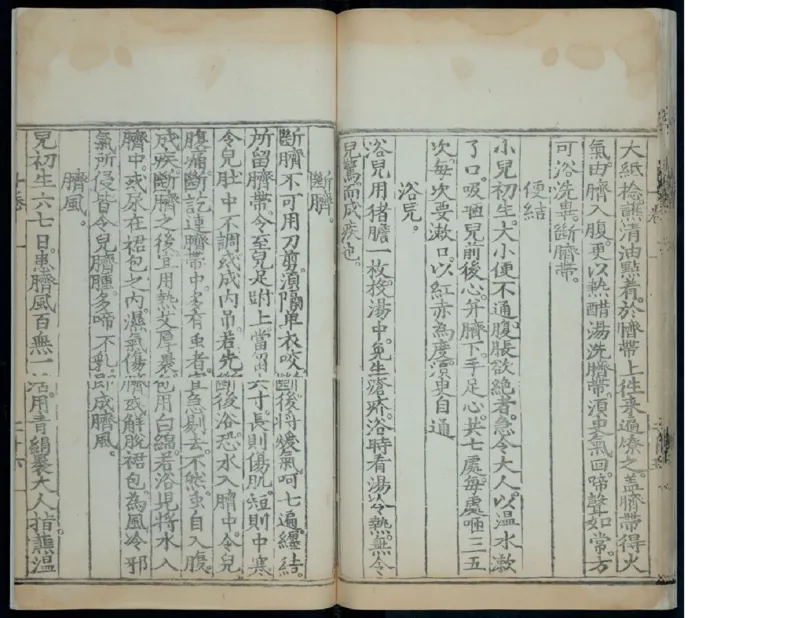 大紙捻蘸清油點着。於臍帶上往来遍燎之。盖臍帶得火
氣由臍入腹。更以熱醋湯洗臍帶。須臾氣回。啼聲如常。方
可浴洗畢。断臍帶。
便結
小兒初生。大小便不通。腹脹欲絶者。急令大人。以温水漱
了口。吸咂兒前後心。并臍下。手足心。共七處。每處咂三五
次。每次要漱口。以紅赤為度。須臾自通
浴兒。
浴兒用猪膽一枚。投湯中。免生瘡疥。浴時看湯冷熱。無令
兒驚而成疾也。
断臍。
断臍不可用刀剪。須隔單衣咬断。後将煖氣呵七遍。纏結。
所留臍帶。令至兒足趺上。當留六寸。長則傷肌。短則中寒
令兒肚中不調。或成内吊。若先断後浴。恐水入臍中。令兒
腹痛。断訖。連臍帶中。多有虫者。宜急剔去。不然。虫自入腹。
成疾。断臍之後。宜用熱艾厚裹。包用白綿。若浴兒将水入
臍中。或尿在裙包之内。濕氣傷臍。或解脫裙包。為風冷邪
氣所侵。皆令兒臍腫。多啼不乳。即成臍風。
臍風。
兒初生六七日。患臍風。百無一活。用青絹裹大人指。蘸温